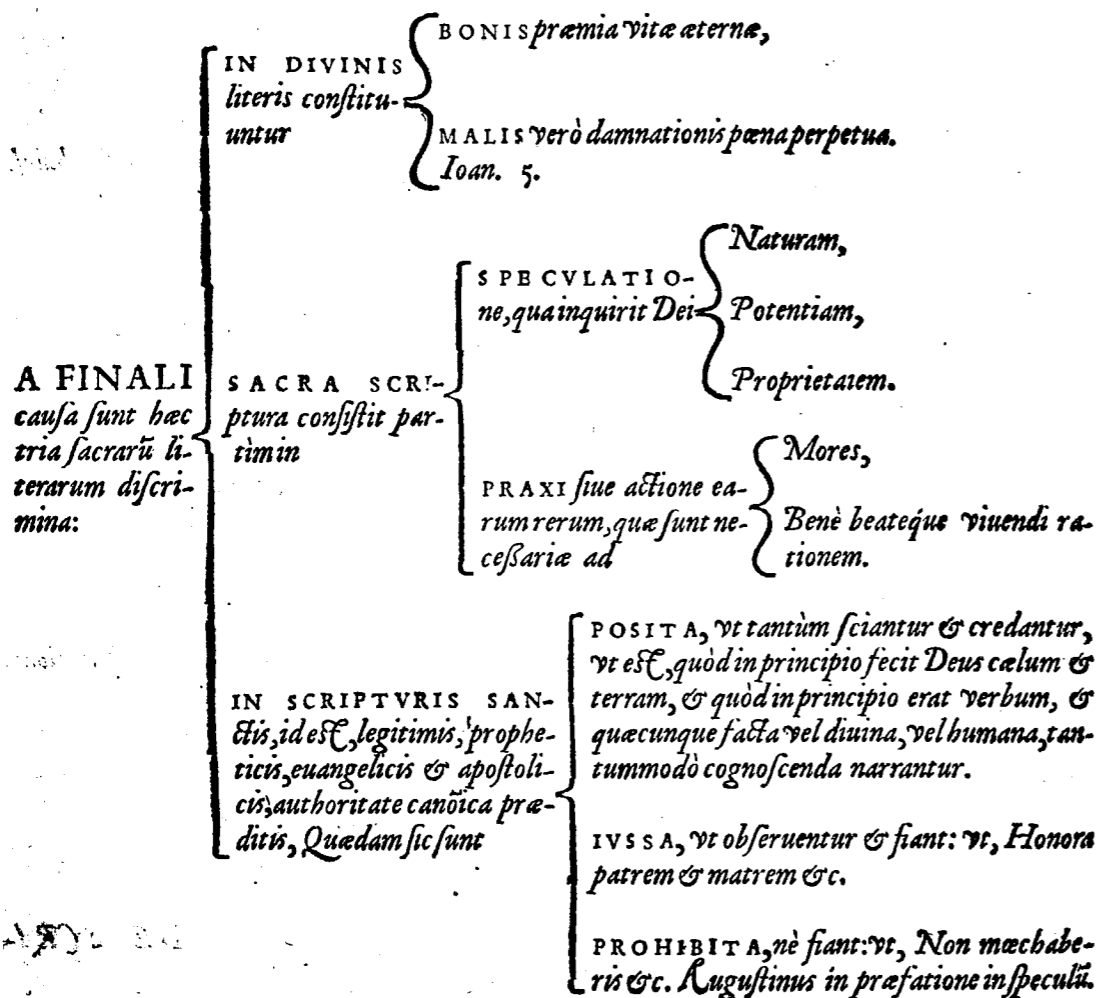 A FINALI
cauſa ſunt hæc
tria ſacrarũ li-
terarum diſcri-
mina:
IN DIVINIS
literis conſtitu-
untur
BONIS præmia vitæ æternæ,
MALIS verò damnationis pœna perpetua.
Ioan. 5.
SACRA SCRI-
ptura conſiſtit par-
tìm in
SPECVLATIO-
ne, qua inquirit Dei
Naturam,
Potentiam,
Proprietatem.
PRAXI ſiue actione ea-
rum rerum, quæ ſunt ne-
ceſſariæ ad
Mores,
Benè beateque viuendi ra-
tionem.
IN SCRIPTVRIS SAN-
ctis, id eſt, legitimis, prophe-
ticis, euangelicis & apoſtoli-
cis, authoritate canõica præ-
ditis, Quædam ſic ſunt
POSITA, vt tantùm ſciantur & credantur,
vt eſt, quòd in principio fecit Deus cælum &
terram, & quòd in principio erat verbum, &
quæcunque facta vel diuina, vel humana, tan-
tummodò cognoſcenda narrantur.
IVSSA, vt obſeruentur & fiant: vt, Honora
patrem & matrem &c.
PROHIBITA, nè fiant: vt, Non mœchabe-
ris &c. Auguſtinus in præfatione in ſpeculũ.